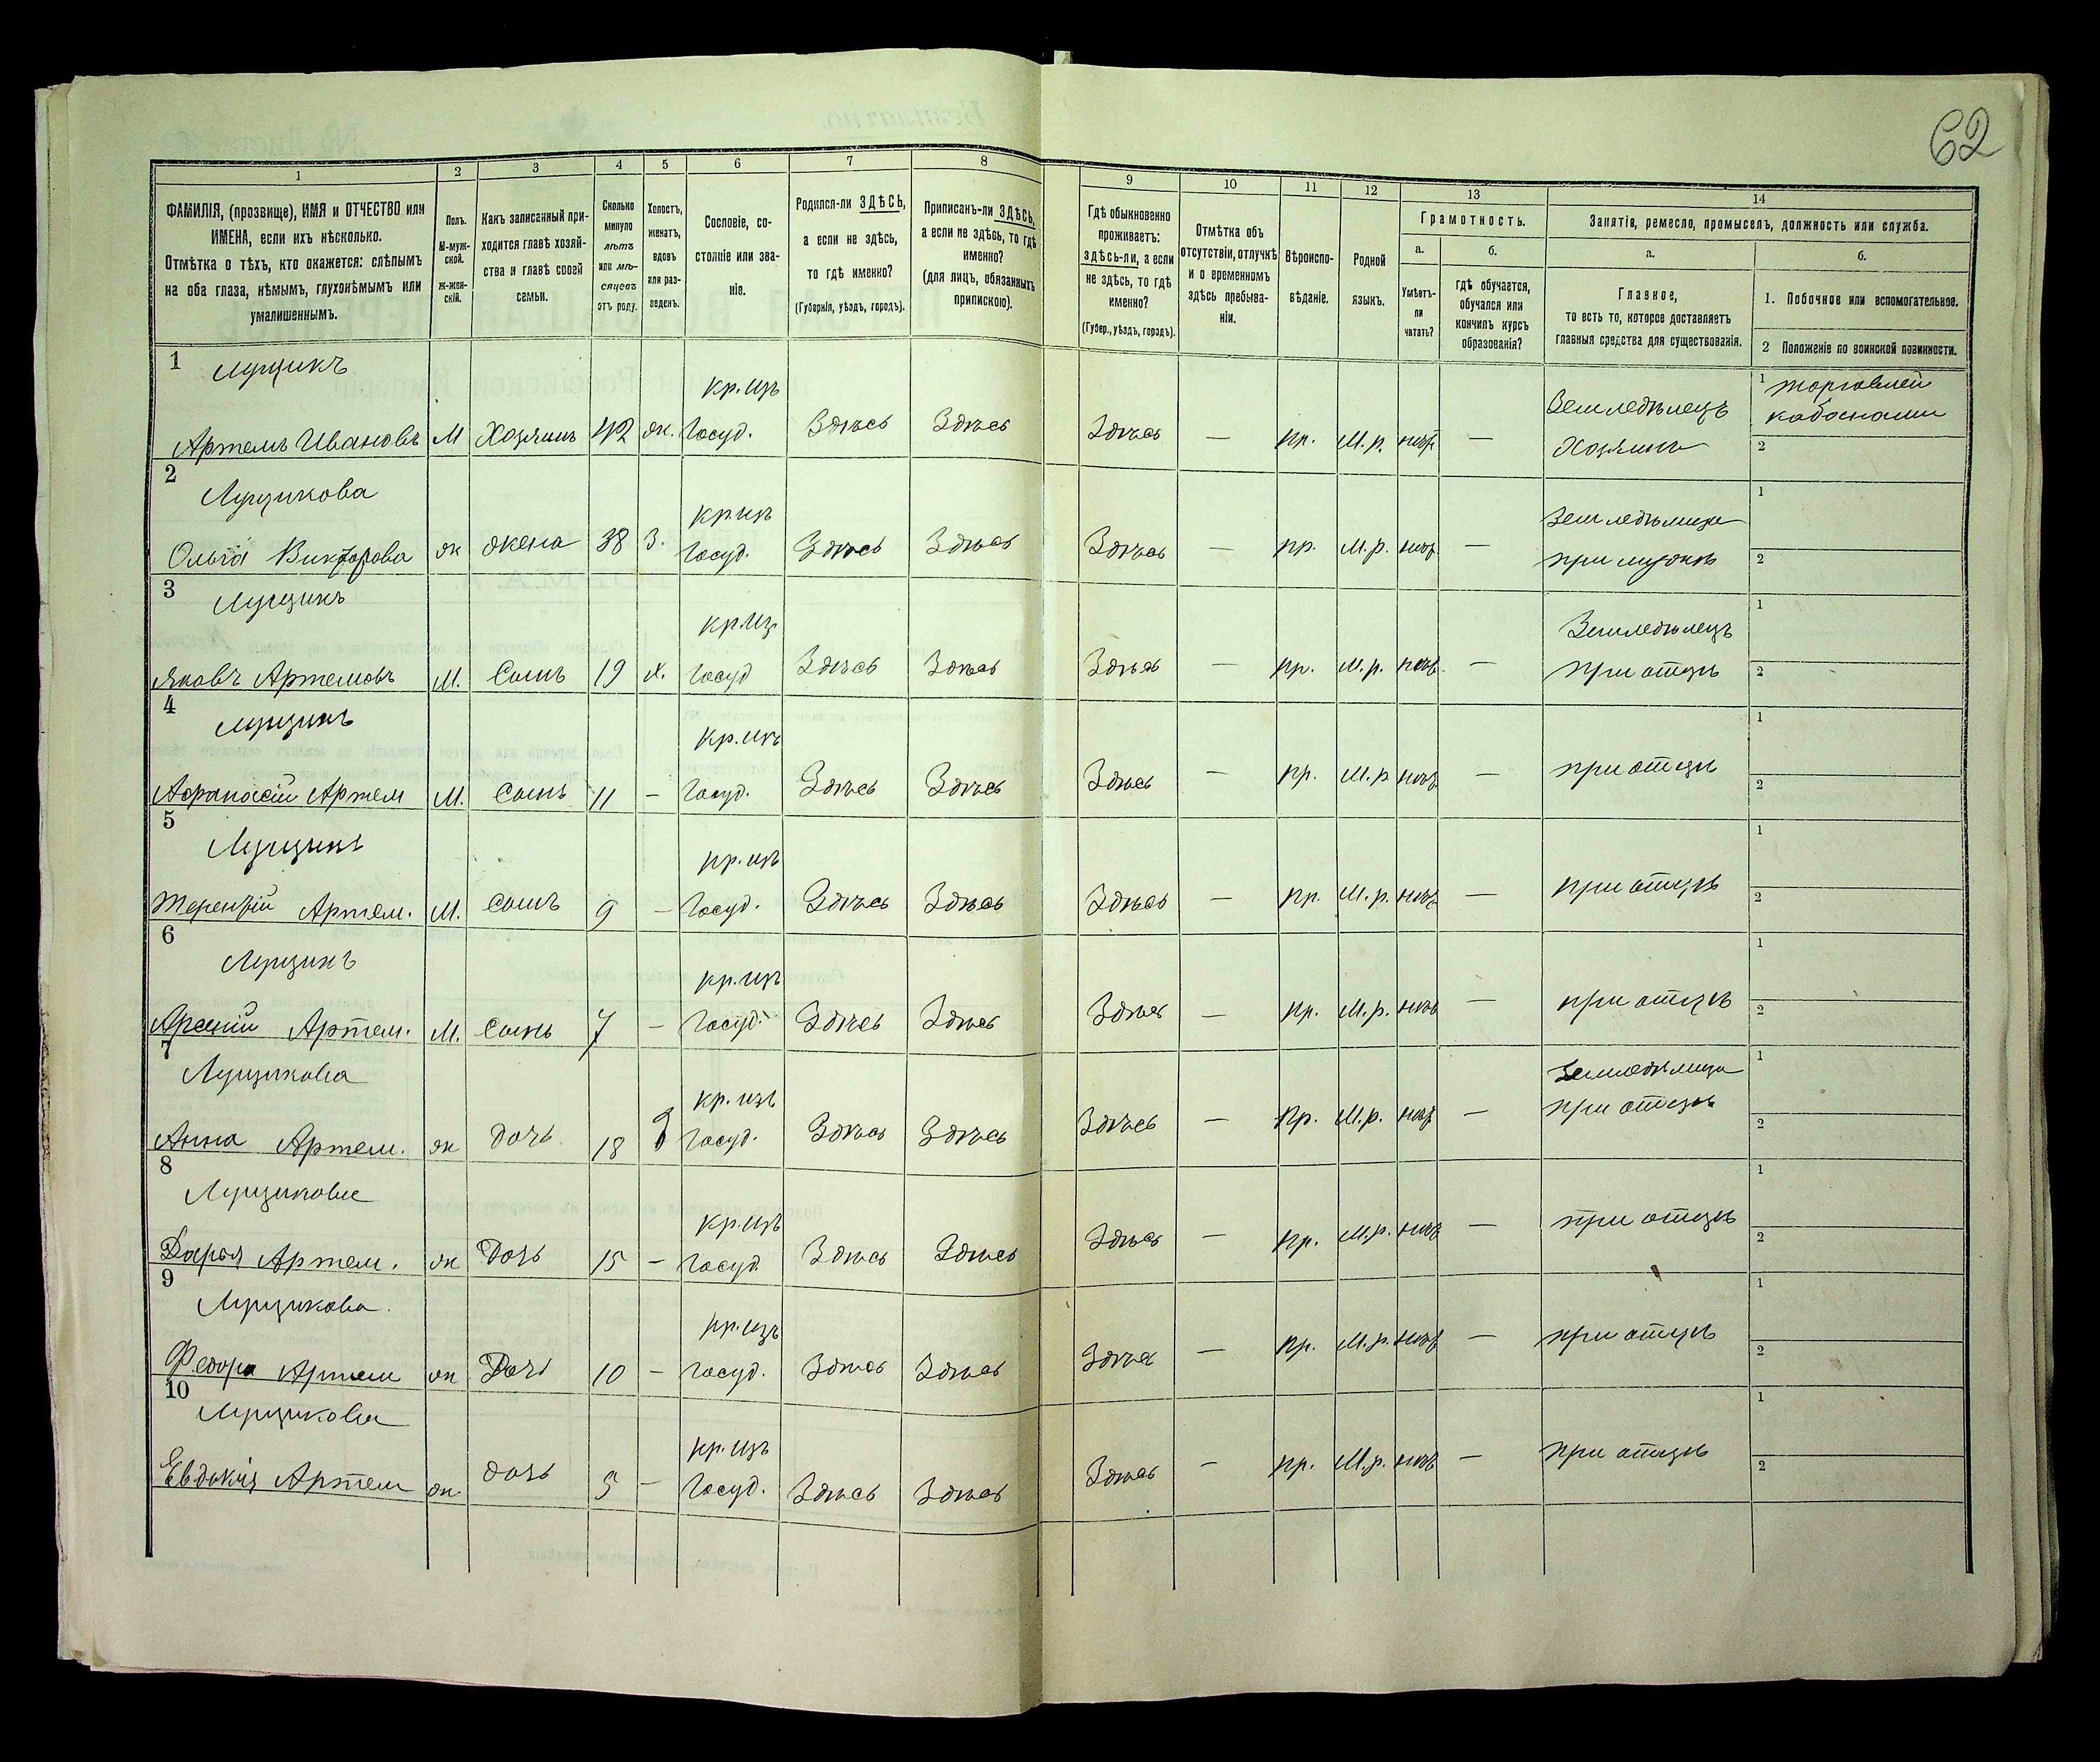 62
1 2 3 4 5 6 7 8 9 10 11 12 13 14
ФАМИЛІЯ, (прозвище), ИМЯ и ОТЧЕСТВО или
ИМЕНА, если ихъ нѣсколько.
Отмѣтка о тѣхъ, кто окажется: слѣпымъ
на оба глаза, нѣмымъ, глухонѣмымъ или
умалишеннымъ.
Полъ.
М-муж-
ской.
ж-жен-
скій.
Какъ записанный при-
ходится главѣ хозяй-
ства и главѣ своей
семьи.
Сколько
минуло
лѣтъ
или мѣ-
сяцевъ
отъ роду.
Холостъ,
женатъ,
вдовъ
или раз-
веденъ.
Сословіе, со-
стояніе или зва-
ніе.
Родился-ли ЗДѢСЬ,
а если не здѣсь,
то гдѣ именно?
(Губернія, уѣздъ, городъ).
Приписанъ-ли ЗДѢСЬ,
а если не здѣсь, то гдѣ
именно?
(для лицъ, обязанныхъ
припискою).
Гдѣ обыкновенно
проживаетъ:
здѣсь-ли, а если
не здѣсь, то гдѣ
именно?
(Губер., уѣздъ, городъ).
Отмѣтка объ
отсутствіи, отлучкѣ
и о временномъ
здѣсь пребыва-
ніи.
Вѣроиспо-
вѣданіе.
Родной
языкъ.
Грамотность.
а.
Умѣетъ-
ли
читать?
б.
гдѣ обучается,
обучался или
кончилъ курсъ
образованія?
Занятія, ремесло, промыселъ, должность или служба.
а.
Главное,
то есть то, которое доставляетъ
главныя средства для существованія.
б.
1. Побочное или вспомогательное.
2 Положеніе по воинской повинности.
1 Лущикъ кр. изъ Земледѣлецъ 1 торговлей
Артемъ Ивановъ М Хозяинъ 42 ж. Госуд. Здѣсь Здѣсь Здѣсь — пр. М.р. нѣтъ — Хозяинъ 2
2 Лущикова кр. изъ Земледѣлица 1
Ольга Викторова ж жена 38 З. Госуд. Здѣсь Здѣсь Здѣсь — пр. М.р. нѣтъ — при мужѣ 2
3 Лущикъ кр. изъ Земледѣлецъ 1
Яковъ Артемовъ М. Сынъ 19 х. Госуд Здѣсь Здѣсь Здѣсь — пр. М.р. нѣтъ — при отцѣ 2
4 Лущикъ кр. изъ 1
Афанасій Артем М. Сынъ 11 — Госуд. Здѣсь Здѣсь Здѣсь — пр. М.р нѣтъ — при отцѣ 2
5 Лущикъ кр. изъ 1
Терентій Артем. М. Сынъ 9 — Госуд. Здѣсь Здѣсь Здѣсь — пр. М.р. нѣтъ — при отцѣ 2
6 Лущикъ кр. изъ 1
Арсеній Артем. М. Сынъ 7 — Госуд. Здѣсь Здѣсь Здѣсь — пр. М.р. нѣтъ — при отцѣ 2
7 Лущикова кр. изъ Земледѣлица 1
Анна Артем. ж дочь 18 Госуд. Здѣсь Здѣсь Здѣсь — пр. М.р. нѣтъ — при отцѣ 2
8 Лущикова кр. изъ 1
Дарья Артем. ж Дочь 15 — Госуд. Здѣсь Здѣсь Здѣсь — пр. М.р. нѣтъ — при отцѣ 2
9 Лущикова кр. изъ 1
Федора Артем ж Дочь 10 — Госуд. Здѣсь Здѣсь Здѣсь — пр. М.р. нѣтъ — при отцѣ 2
10 Лущикова кр. изъ 1
Евдокія Артем ж. дочь — Госуд. Здѣсь Здѣсь Здѣсь — пр. М.р. нѣтъ — при отцѣ 2